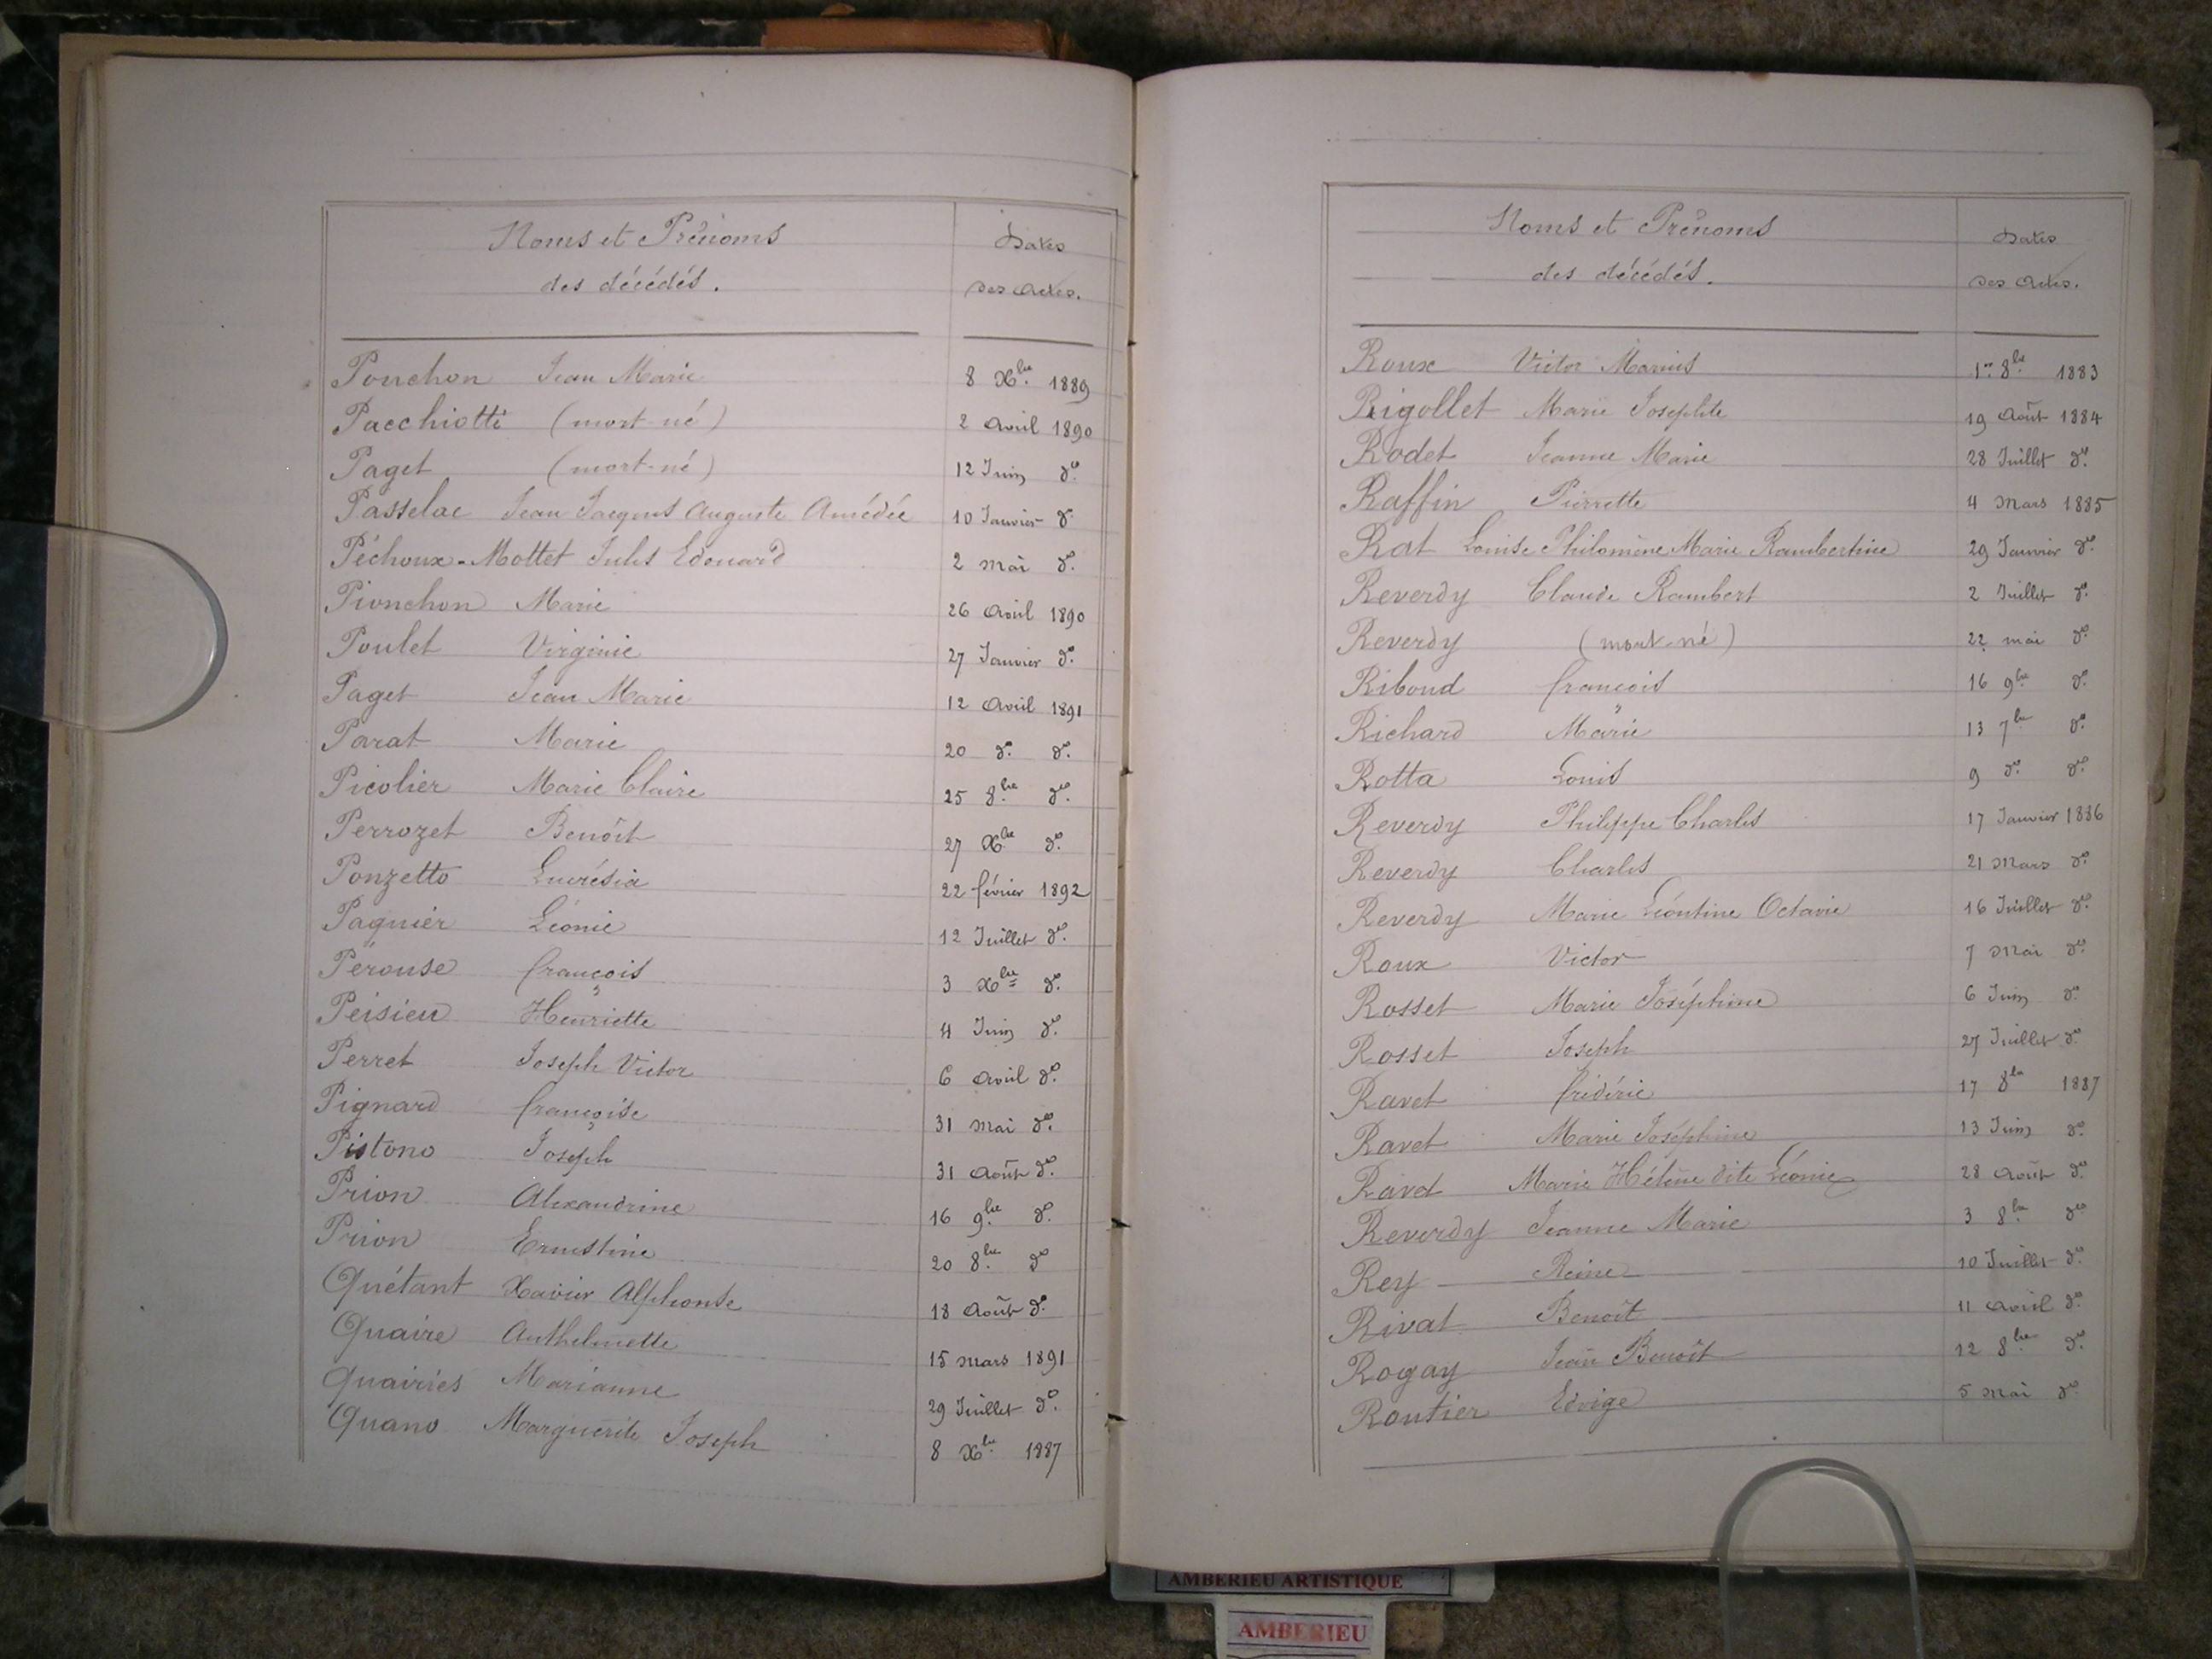 Noms et Prénoms Dates
des décédés. des Actes.
Ponchon Jean Marie 8 Xbre 1889
Pacchiotti (mort-né) 2 Avril 1890
Paget (mort-né) 12 Juin do
Passelac Jean Jacques Auguste Amédée 10 Janvier do
Péchoux-Mottet Jules Edouard 2 mai do
Pionchon Marie 26 Avril 1890
Poulet Virginie 27 Janvier do
Paget Jean Marie 12 Avril 1891
Parat Marie 20 do do
Picolier Marie Claire 25 8bre do
Perrozet Benoît 27 Xbre do
Ponzetto Lucrésia 22 février 1892
Paquier Léonie 12 Juillet do
Pérouse françois 3 Xbre do
Peisieu Henriette 4 Juin do
Perret Joseph Victor 6 Avril do
Pignard françoise 31 mai do
Pistono Joseph 31 Août do
Prion Alexandrine 16 9bre do
Prion Ernestine 20 8bre do
Quétant Xavier Alphonse 18 Août do
Quaire Anthelmette 15 mars 1891
Quairiès Marianne 29 Juillet do
Quano Marguerite Joseph 8 Xbre 1887
Noms et Prénoms Dates
des décédés. des Actes.
Roux Victor Marius 1er 8bre 1883
Rigollet Marie Josephte 19 Août 1884
Rodet Jeanne Marie 28 Juillet do
Raffin Pierrette 4 Mars 1885
Rat Louise Philomène Marie Rambertine 29 Janvier do
Reverdy Claude Rambert 2 Juillet do
Reverdy (mort-né) 22 mai do
Riboud françois 16 9bre do
Richard Marie 13 7bre do
Rotta Louis 9 do do
Reverdy Philippe Charles 17 Janvier 1886
Reverdy Charles 21 Mars do
Reverdy Marie Léontine Octavie 16 Juillet do
Roux Victor 7 Mai do
Rosset Marie Joséphine 6 Juin do
Rosset Joseph 27 Juillet do
Ravet frédéric 17 8bre 1887
Ravet Marie Joséphine 13 Juin do
Ravet Marie Hélène dite Léonie 28 Août do
Reverdy Jeanne Marie 3 8bre do
Rey Reine 10 Juillet do
Rivat Benoît 11 Avril do
Rogay Jean Benoît 12 8bre do
Routier Edvige 5 Mai do
AMBERIEU ARTISTIQUE
AMBERIEU